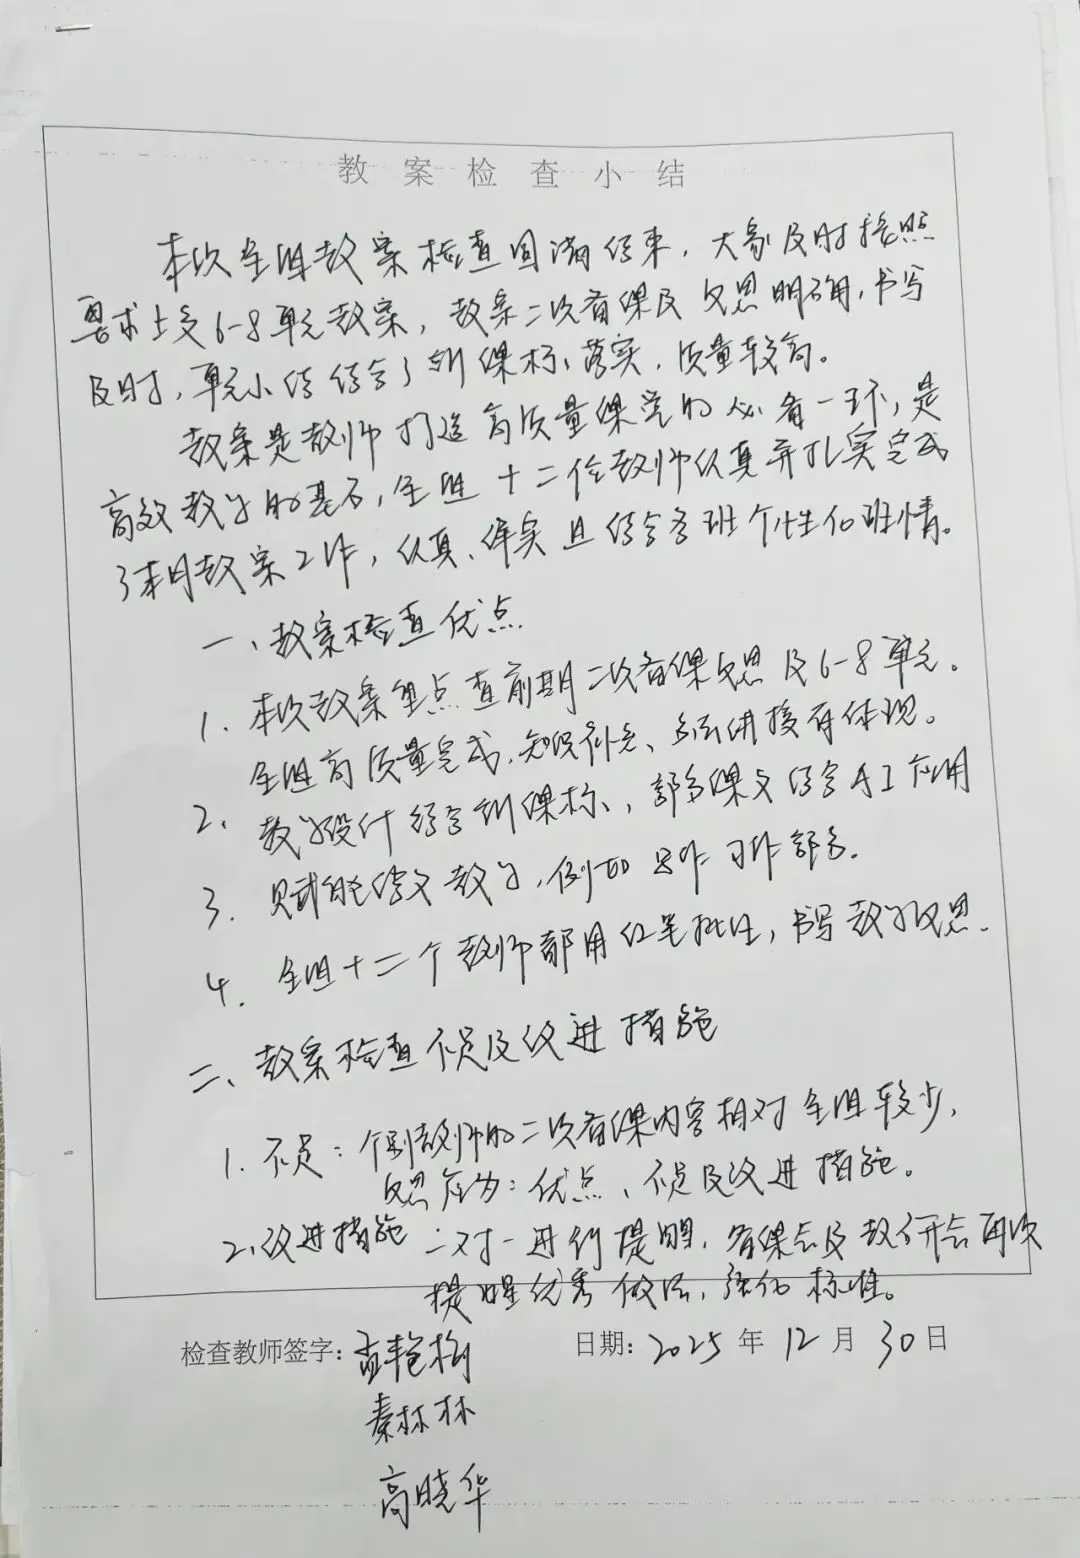 教案检查小结
本次全组教案检查圆满结束，大家及时按照
要求上交6-8单元教案，教案二次备课及反思明确，书写
及时，单元小结结合了新课标、落实，质量较高。
教案是教师打造高质量课堂的必备一环，是
高效教学的基石，全组十二位教师认真并扎实完成
了本月教案工作，认真、详实且结合各班个性化班情。
一、教案检查优点
1. 本次教案重点查前期二次备课反思及6-8单元。
全组高质量完成，知识补充、方法讲授有体现。
2、教学设计结合新课标、部分课文结合AI应用
3. 赋能语文教学，例如写作习作部分。
4. 全组十二个教师都用红笔批注，书写教学反思.
二、教案检查不足及改进措施
1. 不足：个别教师的二次备课内容相对全组较少，
反思应为：优点、不足及改进措施。
2、改进措施：一对一进行提醒，备课会及教研会再次
提醒优秀做法，强化标准。
检查教师签字：孟艳梅 日期：2025年12月30日
秦林林
高晓华